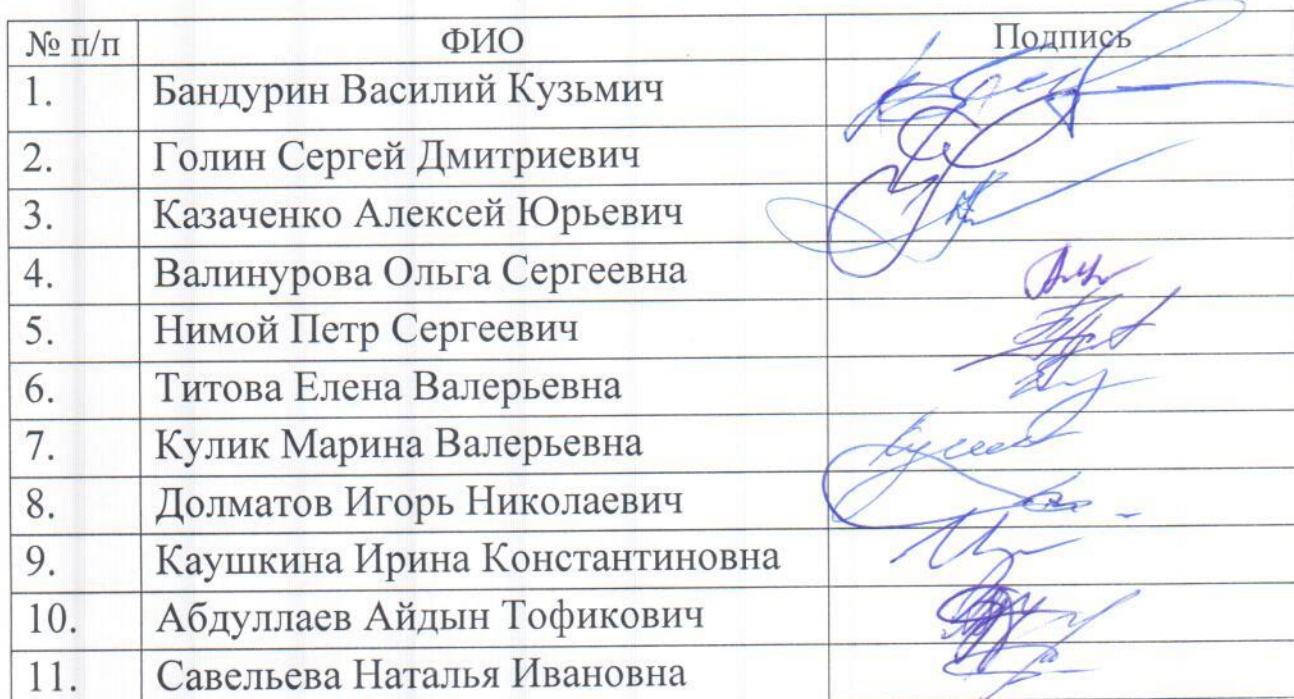 № п/п ФИО Подпись
1. Бандурин Василий Кузьмич
2. Голин Сергей Дмитриевич
3. Казаченко Алексей Юрьевич
4. Валинурова Ольга Сергеевна
5. Нимой Петр Сергеевич
6. Титова Елена Валерьевна
7. Кулик Марина Валерьевна
8. Долматов Игорь Николаевич
9. Каушкина Ирина Константиновна
10. Абдуллаев Айдын Тофикович
11. Савельева Наталья Ивановна